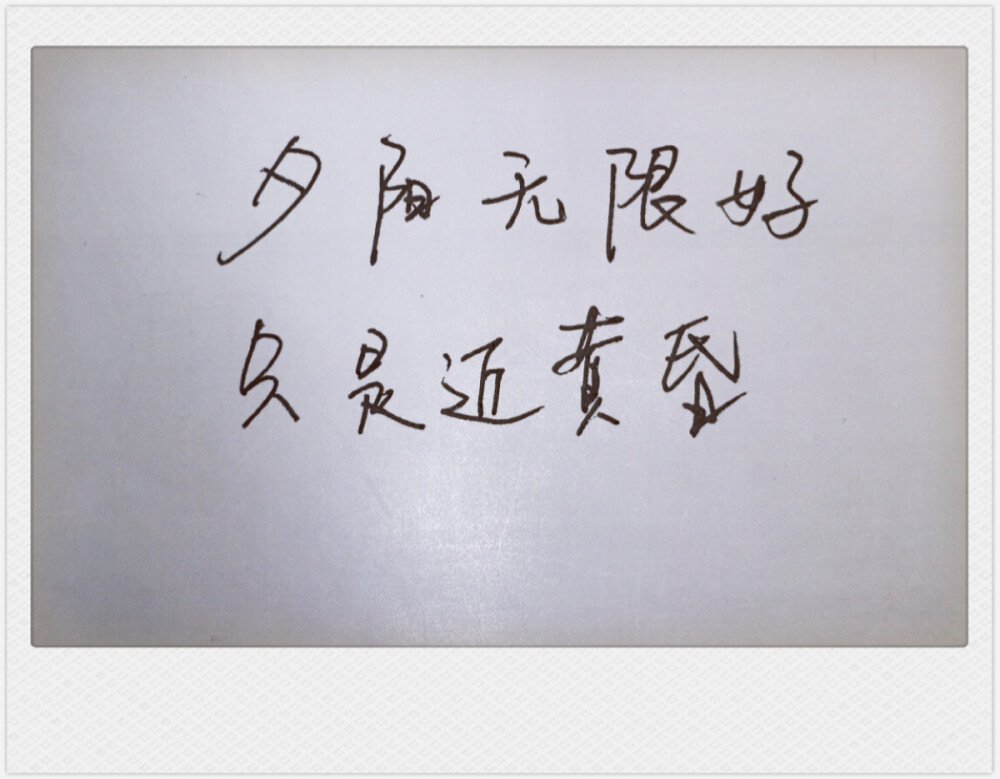 夕阳无限好
只是近黄昏